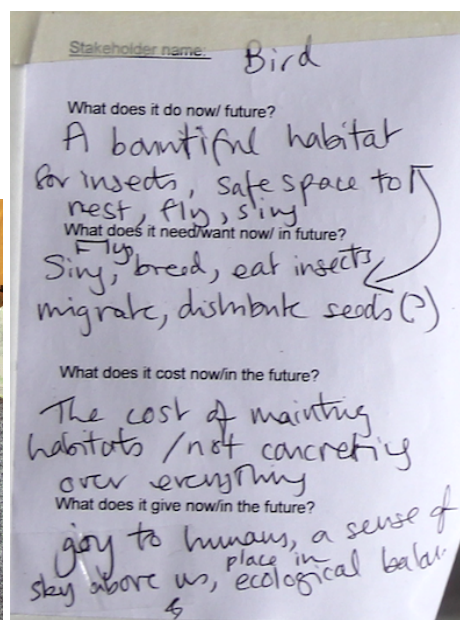 Stakeholder name: Bird
What does it do now/ future?
A bountiful habitat
for insects, safe space to
nest, fly, sing
What does it need/want now/ in future?
Fly,
Sing, breed, eat insects,
migrate, distribute seeds (?)
What does it cost now/in the future?
The cost of
habitats / not concreting
over everything
What does it give now/in the future?
joy to humans, a sense of
place in
sky above us, ecological